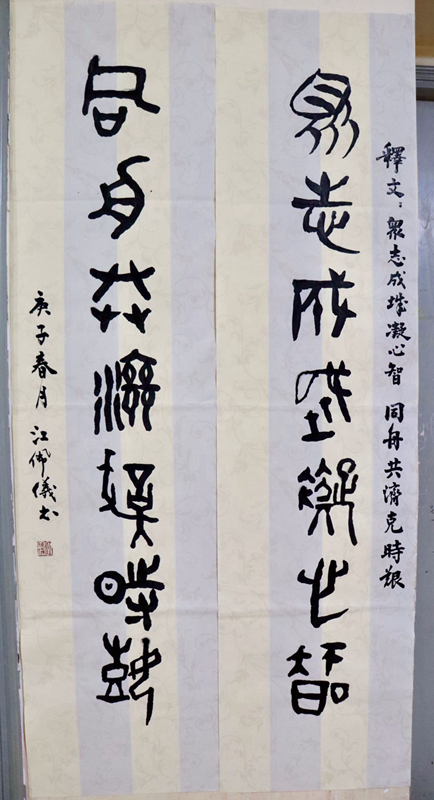 釋文：眾志成城凝心智 同舟共濟克時艱
眾志成城凝心智
同舟共濟克時艱
庚子春月 江佩儀書